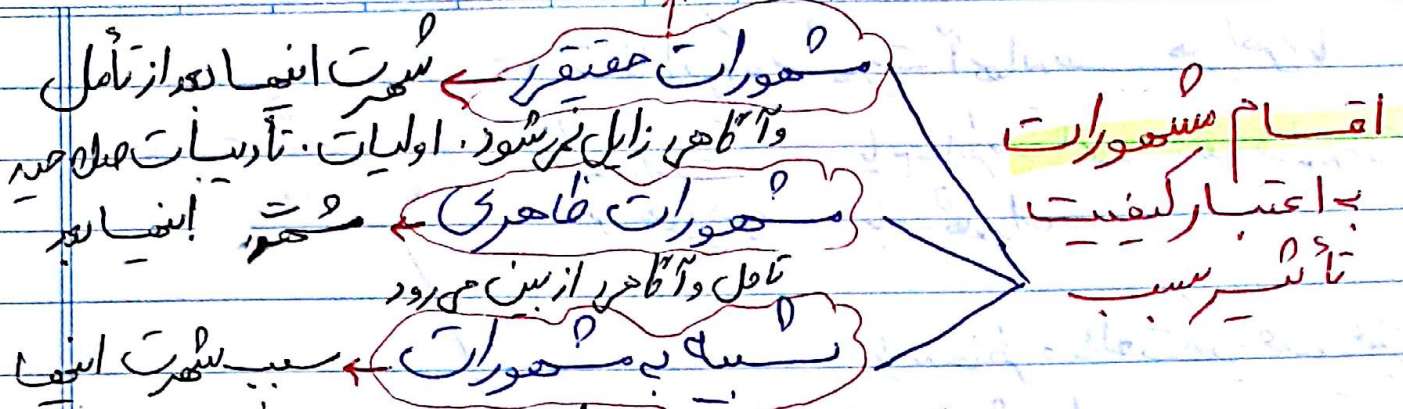 اقسام مشهورات
به اعتبار کیفیت
تأثیر سبب
مشهورات حقیقی ← شهرت اینها بعد از تأمل
و آگاهی زایل نمی‌شود. اولیات. تأدیبات صلاحیه
مشهورات ظاهری ← شهرت اینها بعد
تامل و آگاهی از بین می‌رود
شبیه به مشهورات ← سبب شهرت اینها